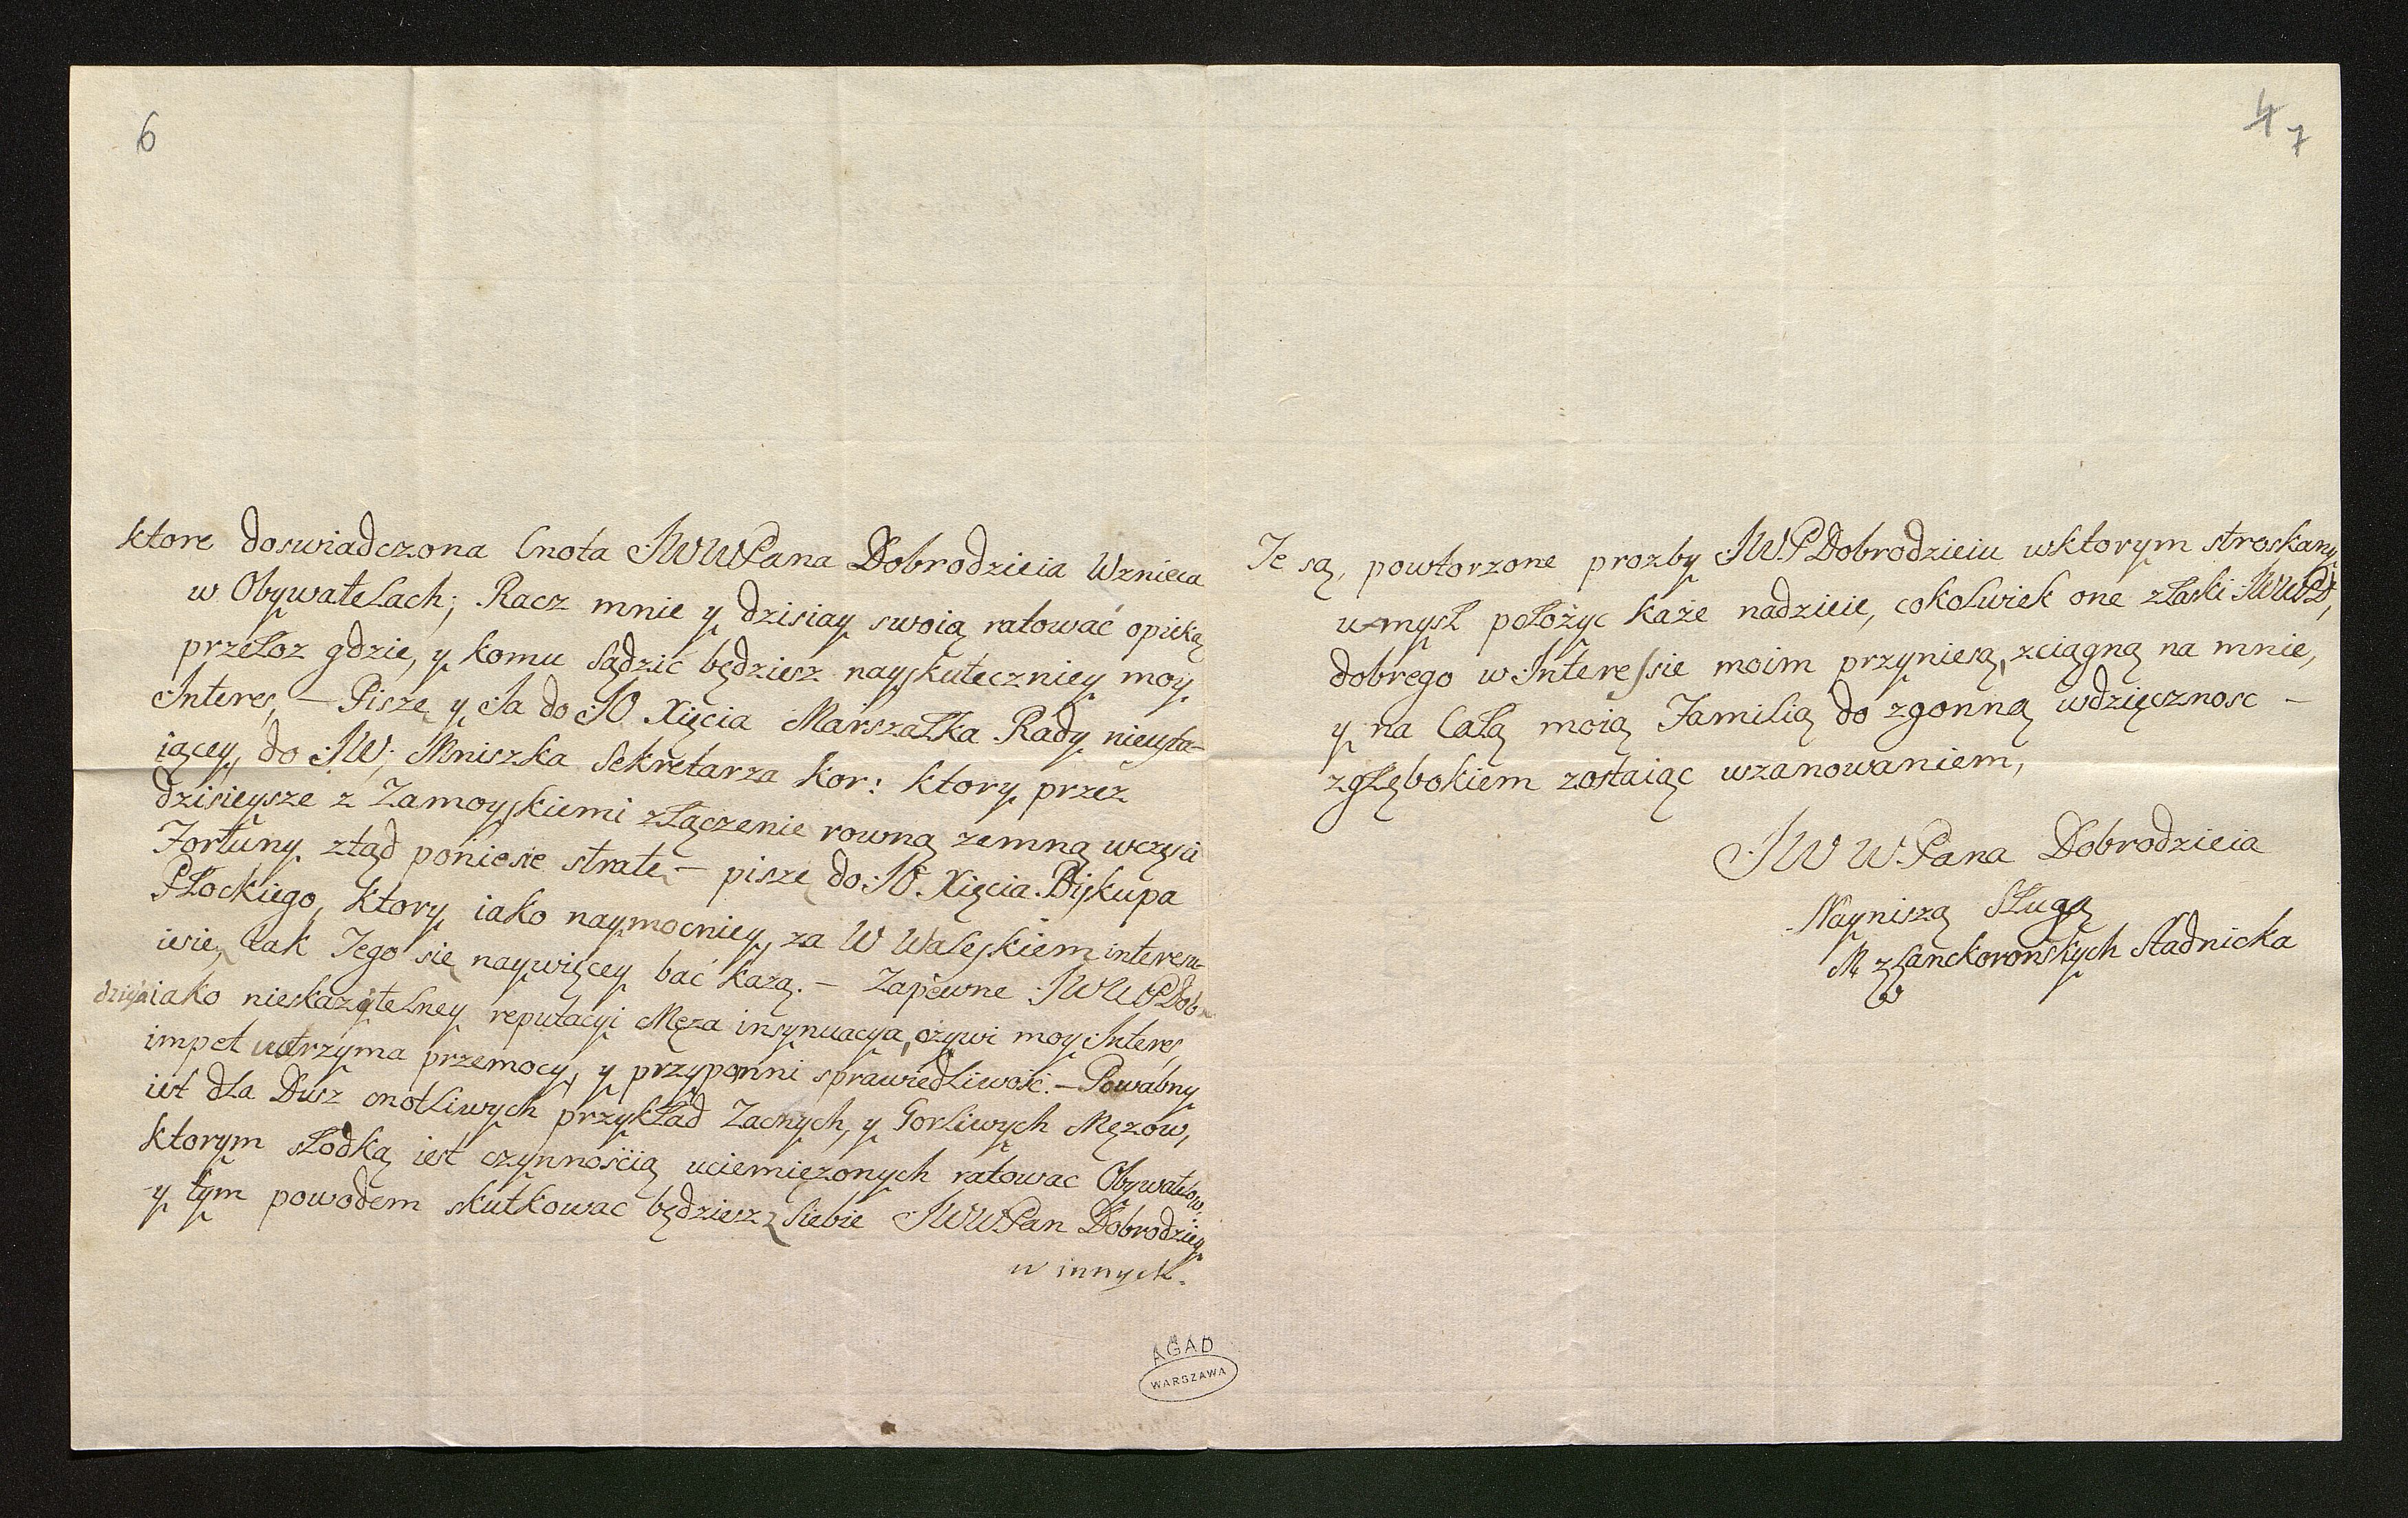 6
ktore doswiadczona Cnota JWWPana Dobrodzieia Wznieca
w Obywatelach; Racz mnie y dzisiay swoią ratować opieką
przełoz gdzie, y komu sądzić będziesz nayskuteczniey moy
Interes, — Pisze y Ja do JO. Xięcia Marszałka Rady nieusta-
iącey, do JW. Mniszka Sekretarza kor: ktory przez
dzisieysze z Zamoyskiemi złączenie rowną zemną wczęsci
Fortuny ztąd poniesie stratę — piszę do JO. Xięcia Biskupa
Płockiego, ktory iako naymocniey za W Waleskiem interesu-
iesie, tak Jego się naywięcey bać każą. — Zapewne JWWPDob-
dzieia iako nieskazitelney reputacyi Męza insynuacya, ożywi moy Interes
impet utrzyma przemocy, y przypomni sprawiedliwość. — Powabny
iest dla Dusz cnotliwych przykład Zacnych, y Gorliwych Męzow,
ktorym słodką iest czynnością uciemięzonych ratowac Obywatelow.
y tym powodem skutkowac będziesz z siebie JWWPan Dobrodziey
w innych.
4 7
Te są, powtorzone prozby JWPDobrodzieiu wktorym stroskany
umysł położyc każe nadzieie, cokolwiek one złaski JWWPD,
dobrego w Interessie moim przyniesą, zciągną na mnie,
y na Całą moią Familią do zgonną wdzięcznosc —
zgłębokiem zostaiąc uszanowaniem,
JWWPana Dobrodzieia
Nayniszą Sługą
M z Lanckorońskych Stadnicka
AGAD
WARSZAWA